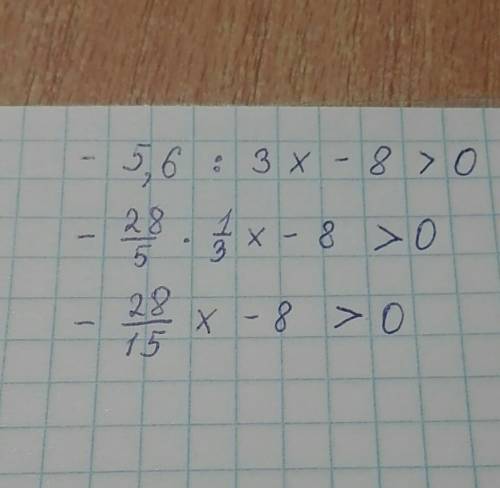 - 5,6 : 3x - 8 > 0
- 28/5 · 1/3 x - 8 > 0
- 28/15 x - 8 > 0